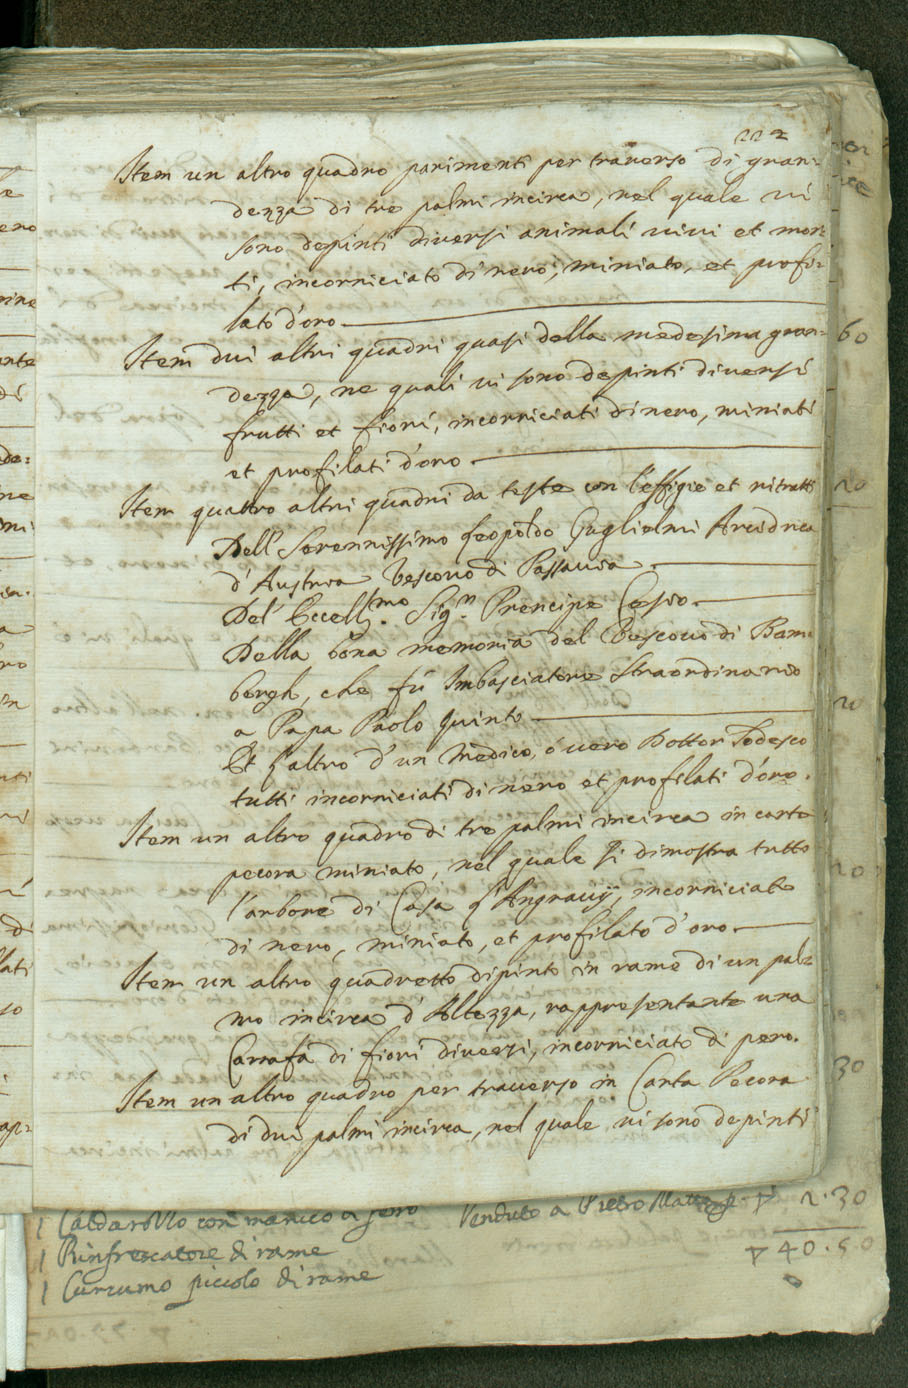 222
Item un altro quadro parimenti per trauerso di gran=
dezza di tre palmi incirca, nel quale ui
sono depinti diuersi animali uiui et mor=
ti, incorniciato di nero, miniato, et profi=
lato d'oro
Item dui altri quadri quasi della medesima gran=
dezza, ne quali ui sono depinti diuersi
frutti et fiori, incorniciati di nero, miniati
et profilati d'oro
Item quattro altri quadri da teste con l'effigie et ritratti
Dell' Serennissimo Leopoldo Guglielmi Arciduca
d'Austria Vescouo di Passauia
Del' Eccell.mo Sig.r Prencipe Cesio
Della bona memoria del Vescouo di Bam=
bergh, che fù Imbasciatore straordinario
a Papa Paolo Quinto
Et l'altro d'un Medico, ó uero Dottor Todesco
tutti incorniciati di nero et profilati d'oro.
Item un altro quadro di tre palmi incirca in carta
pecora miniato, nel quale si dimostra tutto
l'arbore di Casa d'Angrauij, incorniciato
di nero, miniato, et profilato d'oro
Item un altro quadretto dipinto in rame di un pal=
mo incirca d'Altezza, rappresentante una
Carrafa di fiori diuersi, incorniciato di pero.
Item un altro quadro per trauerso in Carta Pecora
di dui palmi incirca, nel quale ui sono depinti
60
20
20
20
30
1 Caldarollo con manico di ferro Venduto a Pietro 2.30
1 Rinfrescatore di rame 40.50
1 piccolo di rame